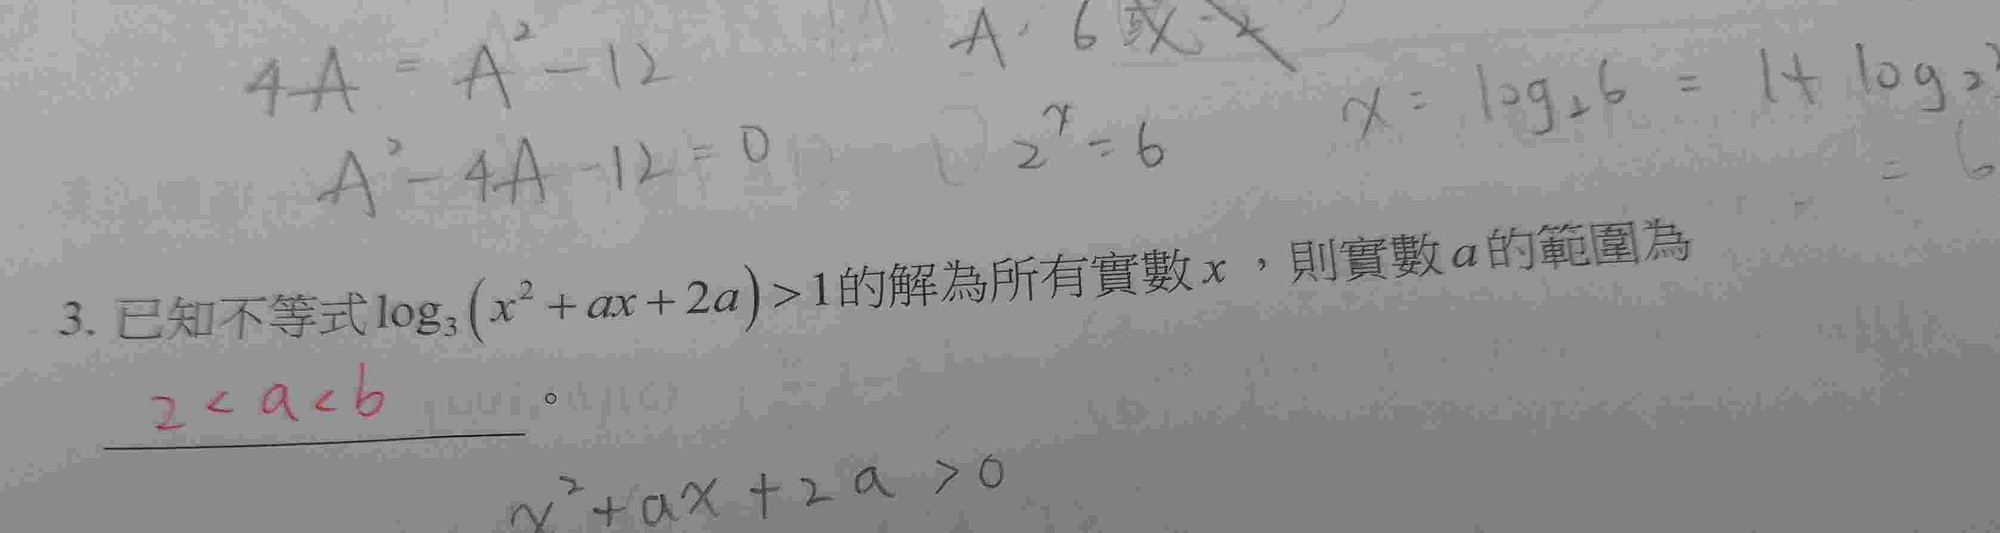 4A = A² - 12
A² - 4A - 12 = 0
A = 6 或
2ˣ = 6
x = log₂6 = 1 + log₂3
= 6
3. 已知不等式 log₃(x² + ax + 2a) > 1 的解為所有實數 x ,則實數 a 的範圍為
2 < a < 6 。
x² + ax + 2a > 0